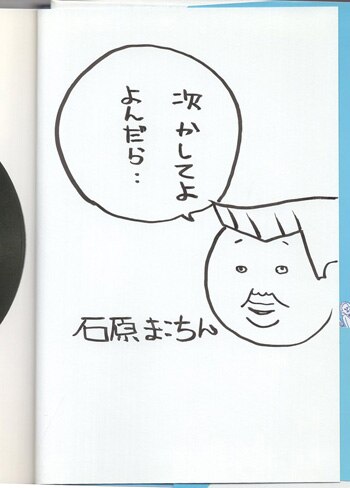 次かしてよ
よんだら..
石原まこちん